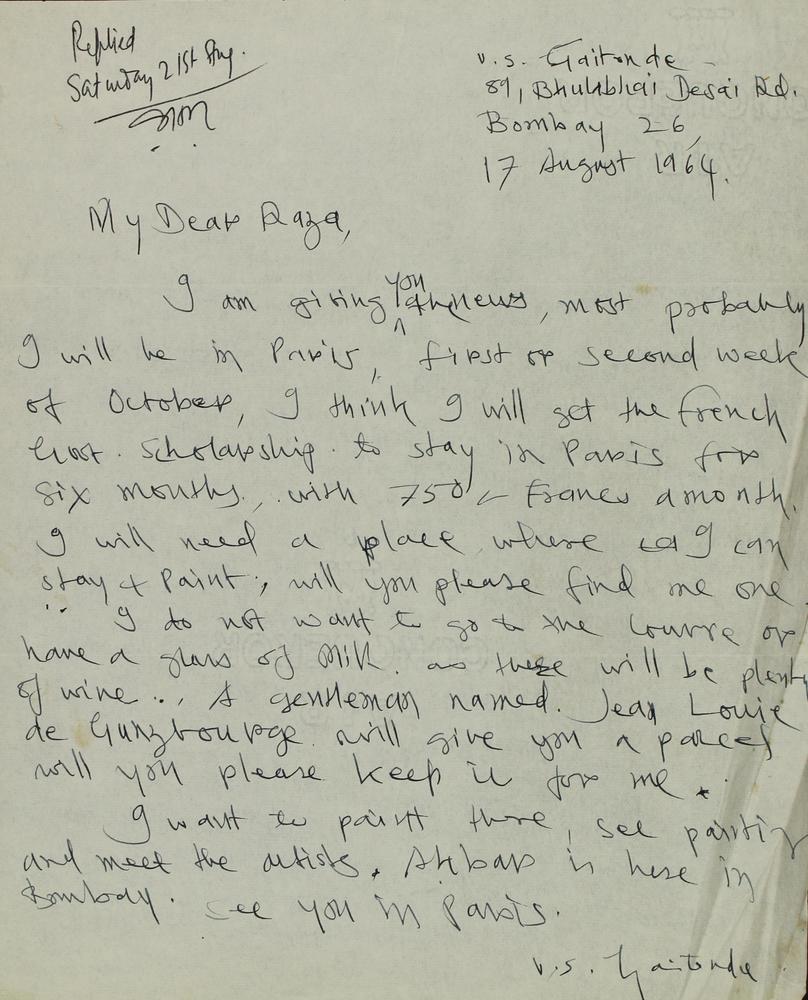 Replied
Saturday 21st Aug.
V.S. Gaitonde
89, Bhulabhai Desai Rd.
Bombay 26,
17 August 1964.
My Dear Raza,
I am giving you news, most probably
I will be in Paris, first or second week
of October, I think I will get the French
Govt. Scholarship. to stay in Paris for
six months, with 750 Francs a month.
I will need a place where I can
stay + Paint, will you please find me one
I do not want to go to the Louvre or
have a glass of Milk. as there will be plenty
of wine... A gentleman named. Jean Louie
de Gunzbourge will give you a parcel
will you please keep it for me.
I want to paint there, see painting
and meet the artists. Akbar is here in
Bombay. See you in Paris.
V.S. Gaitonde